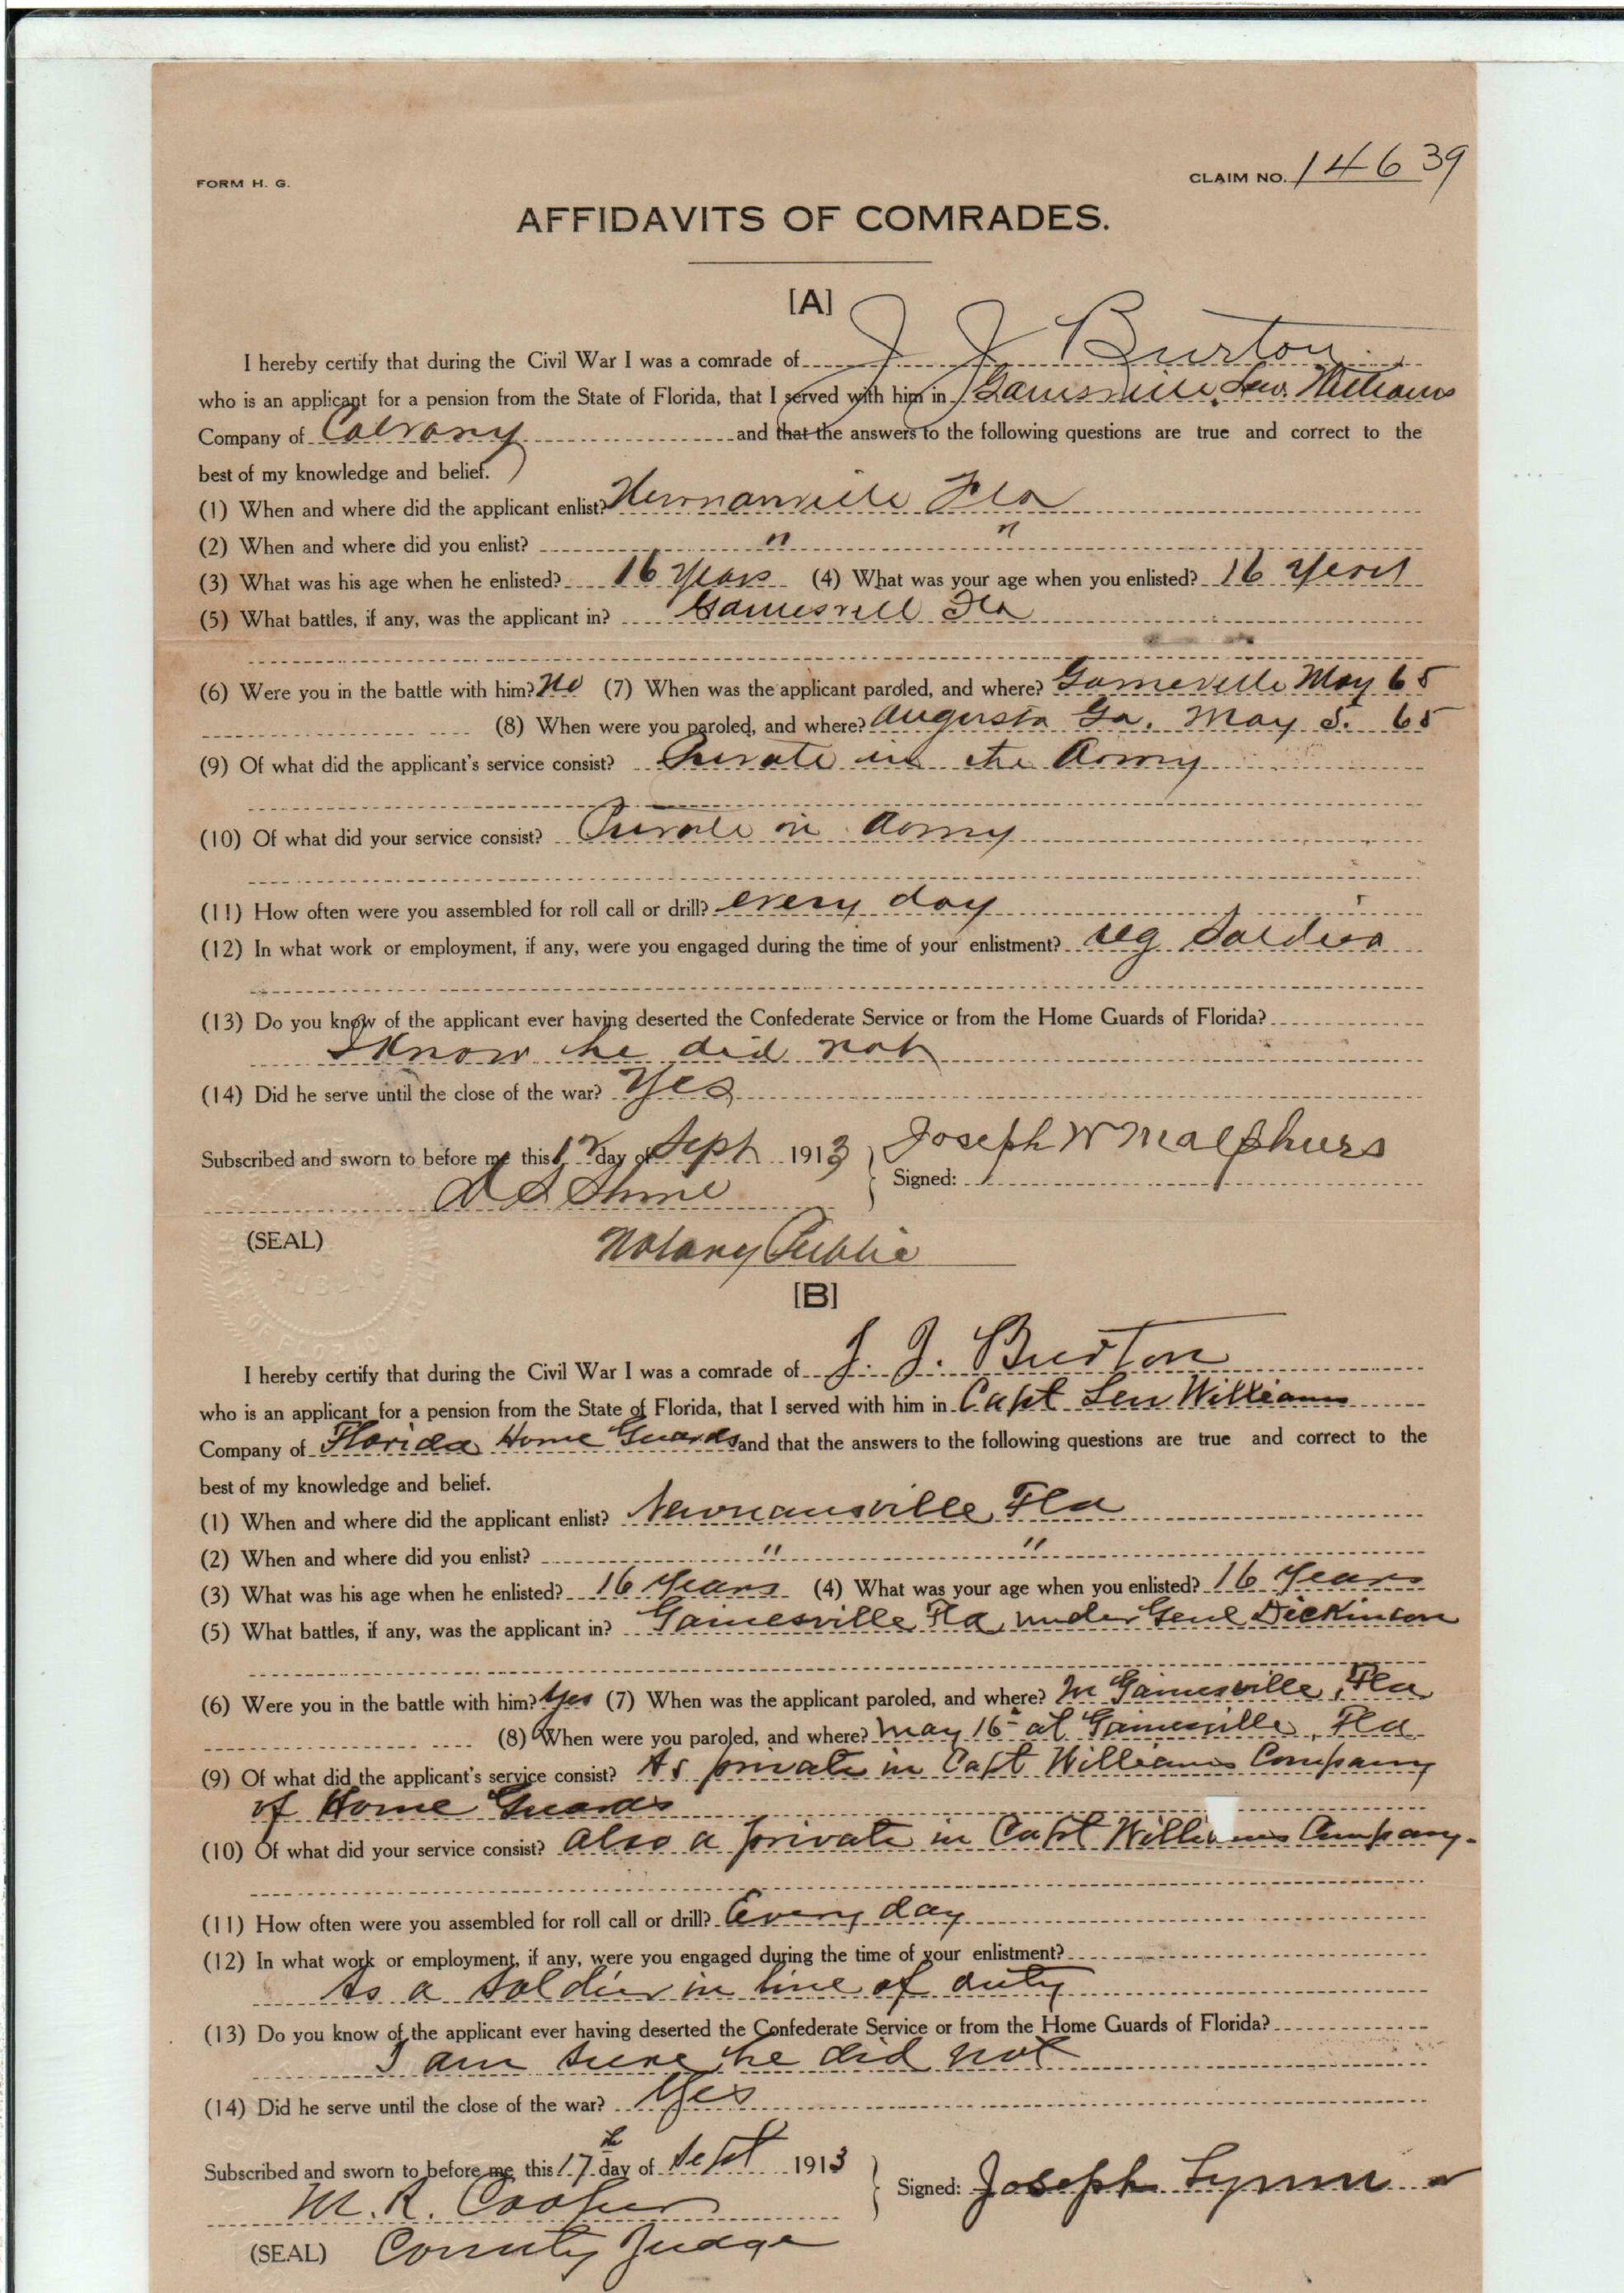 FORM H. G.
CLAIM NO. 14639
AFFIDAVITS OF COMRADES.
[A]
I hereby certify that during the Civil War I was a comrade of J J Burton
who is an applicant for a pension from the State of Florida, that I served with him in Gainsville Lew. Williams
Company of Calvary and that the answers to the following questions are true and correct to the
best of my knowledge and belief.
(1) When and where did the applicant enlist? Newnanville Fla
(2) When and where did you enlist? " "
(3) What was his age when he enlisted? 16 years (4) What was your age when you enlisted? 16 years
(5) What battles, if any, was the applicant in? Gainesvill Fla
(6) Were you in the battle with him? No (7) When was the applicant paroled, and where? Gaineville May 65
(8) When were you paroled, and where? Augusta Ga. May 5. 65
(9) Of what did the applicant's service consist? Private in the Army
(10) Of what did your service consist? Private in Army
(11) How often were you assembled for roll call or drill? every day
(12) In what work or employment, if any, were you engaged during the time of your enlistment? reg
(13) Do you know of the applicant ever having deserted the Confederate Service or from the Home Guards of Florida?
I know he did not
(14) Did he serve until the close of the war? Yes
Subscribed and sworn to before me this day of Sept 1913
Signed: Joseph W Malphurs
(SEAL)
Notary Public
[B]
I hereby certify that during the Civil War I was a comrade of J. J. Burton
who is an applicant for a pension from the State of Florida, that I served with him in Capt Lew Williams
Company of Florida Home Guards and that the answers to the following questions are true and correct to the
best of my knowledge and belief.
(1) When and where did the applicant enlist? Newnansville Fla
(2) When and where did you enlist? " "
(3) What was his age when he enlisted? 16 years (4) What was your age when you enlisted? 16 years
(5) What battles, if any, was the applicant in? Gainesville Fla under Genl Dickinson
(6) Were you in the battle with him? Yes (7) When was the applicant paroled, and where? In Gainesville, Fla
(8) When were you paroled, and where? May 16 at Gainesville, Fla
(9) Of what did the applicant's service consist? As private in Capt Williams Company
of Home Guards
(10) Of what did your service consist? also a private in Capt Williams Company.
(11) How often were you assembled for roll call or drill? Every day
(12) In what work or employment, if any, were you engaged during the time of your enlistment?
As a soldier in line of duty
(13) Do you know of the applicant ever having deserted the Confederate Service or from the Home Guards of Florida?
I am sure he did not
(14) Did he serve until the close of the war? Yes
Subscribed and sworn to before me this 17th day of Sept 1913
Signed: Joseph Lynn
M. R. Cooper
(SEAL) County Judge